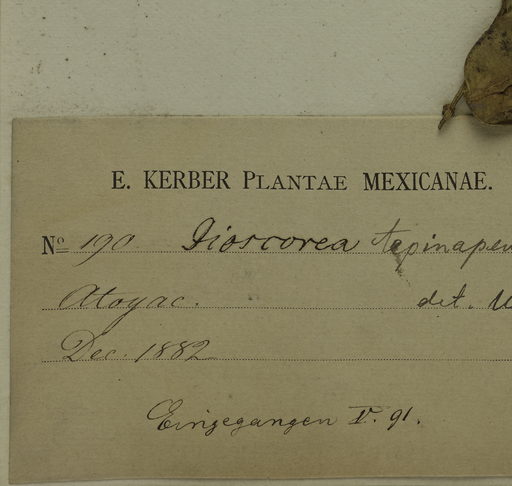 E. KERBER PLANTAE MEXICANAE.
Nº 190 Dioscorea
Atoyac. det.
Dec. 1882
Eingegangen V. 91.